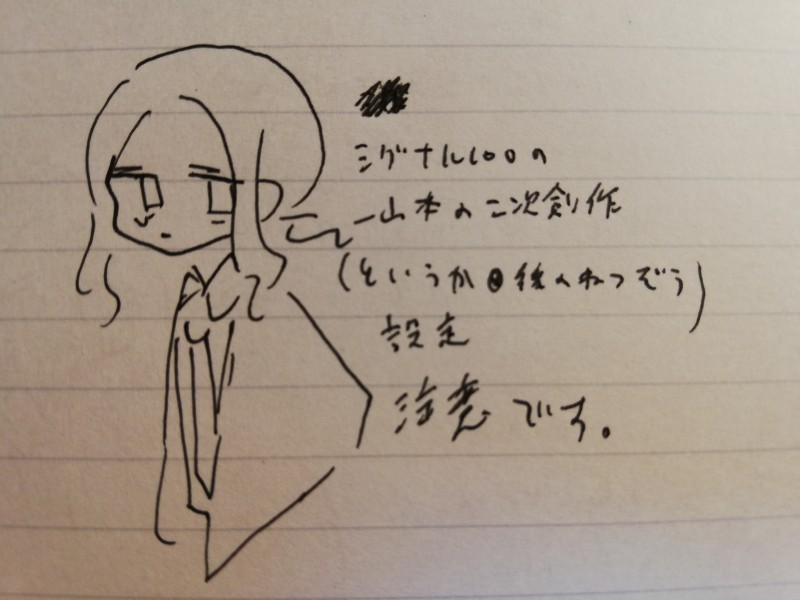 シグナル100の
山本の二次創作
(というか 後のねつぞう)
設定
注意です。